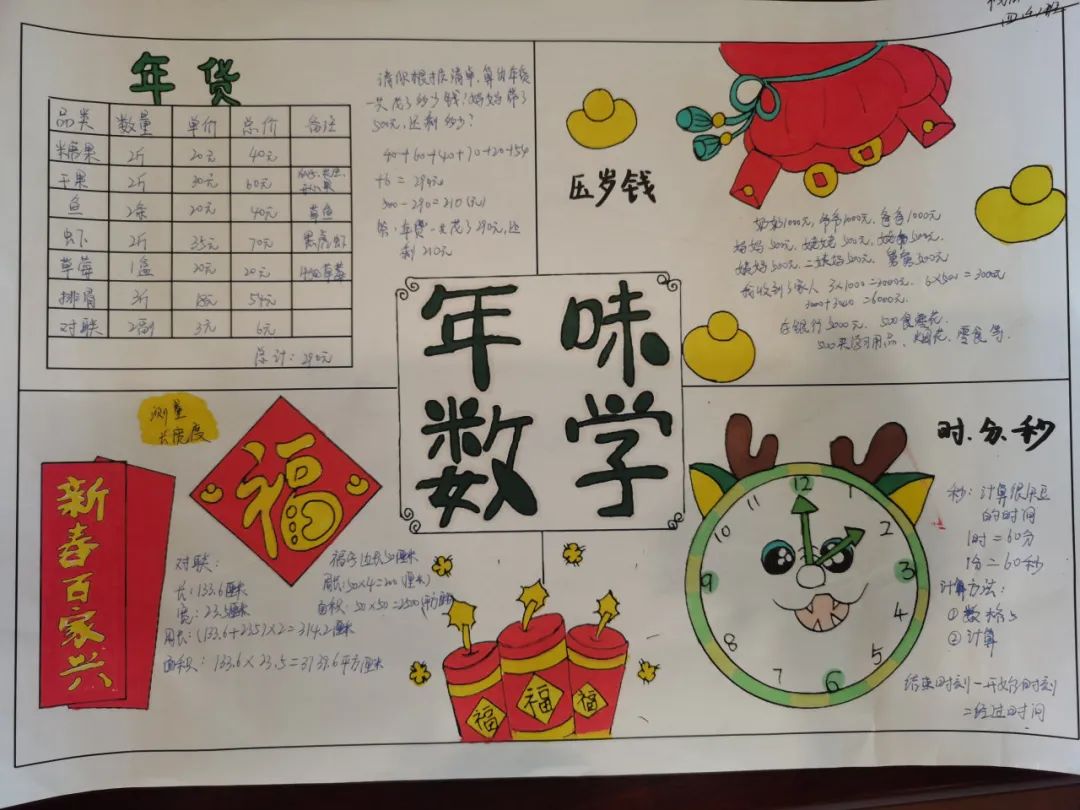 四.4班
年货
品类 数量 单价 总价 备注
糖果 2斤 20元 40元
干果 2斤 30元 60元
鱼 2条 20元 40元 草鱼
虾 2斤 35元 70元 黑虎虾
草莓 1盒 20元 20元 草莓
排骨 3斤 18元 54元
对联 2副 3元 6元
总计:290元
请你根据清单,算出年货
一共花了多少钱?妈妈带了
500元,还剩多少?
40+60+40+70+20+54
+6=290元
500-290=210(元)
答:年货一共花了290元,还
剩210元
压岁钱
奶奶1000元,爷爷1000元,爸爸1000元
妈妈500元,姥姥500元,姥爷500元,
姨妈500元,二姨妈500元,舅舅500元
我收到了家人 3×1000=3000元. 6×500=3000元
3000+3000=6000元.
存银行5000元. 500食零花.
500买学习用品、烟花、零食等.
年味
数学
测量
长宽度
新春百家兴
福
对联:
长:133.6厘米
宽:23.5厘米
周长:(133.6+23.5)×2=314.2厘米
面积:133.6×23.5=3139.6平方厘米
福字边长50厘米
周长:50×4=200(厘米)
面积:50×50=2500(平方厘米)
福
福
福
时.分.秒
12
1
2
3
4
5
6
7
8
9
10
11
秒:计算很短
的时间
1时=60分
1分=60秒
计算方法:
①数格
②计算
结束时刻-开始时刻
=经过时间